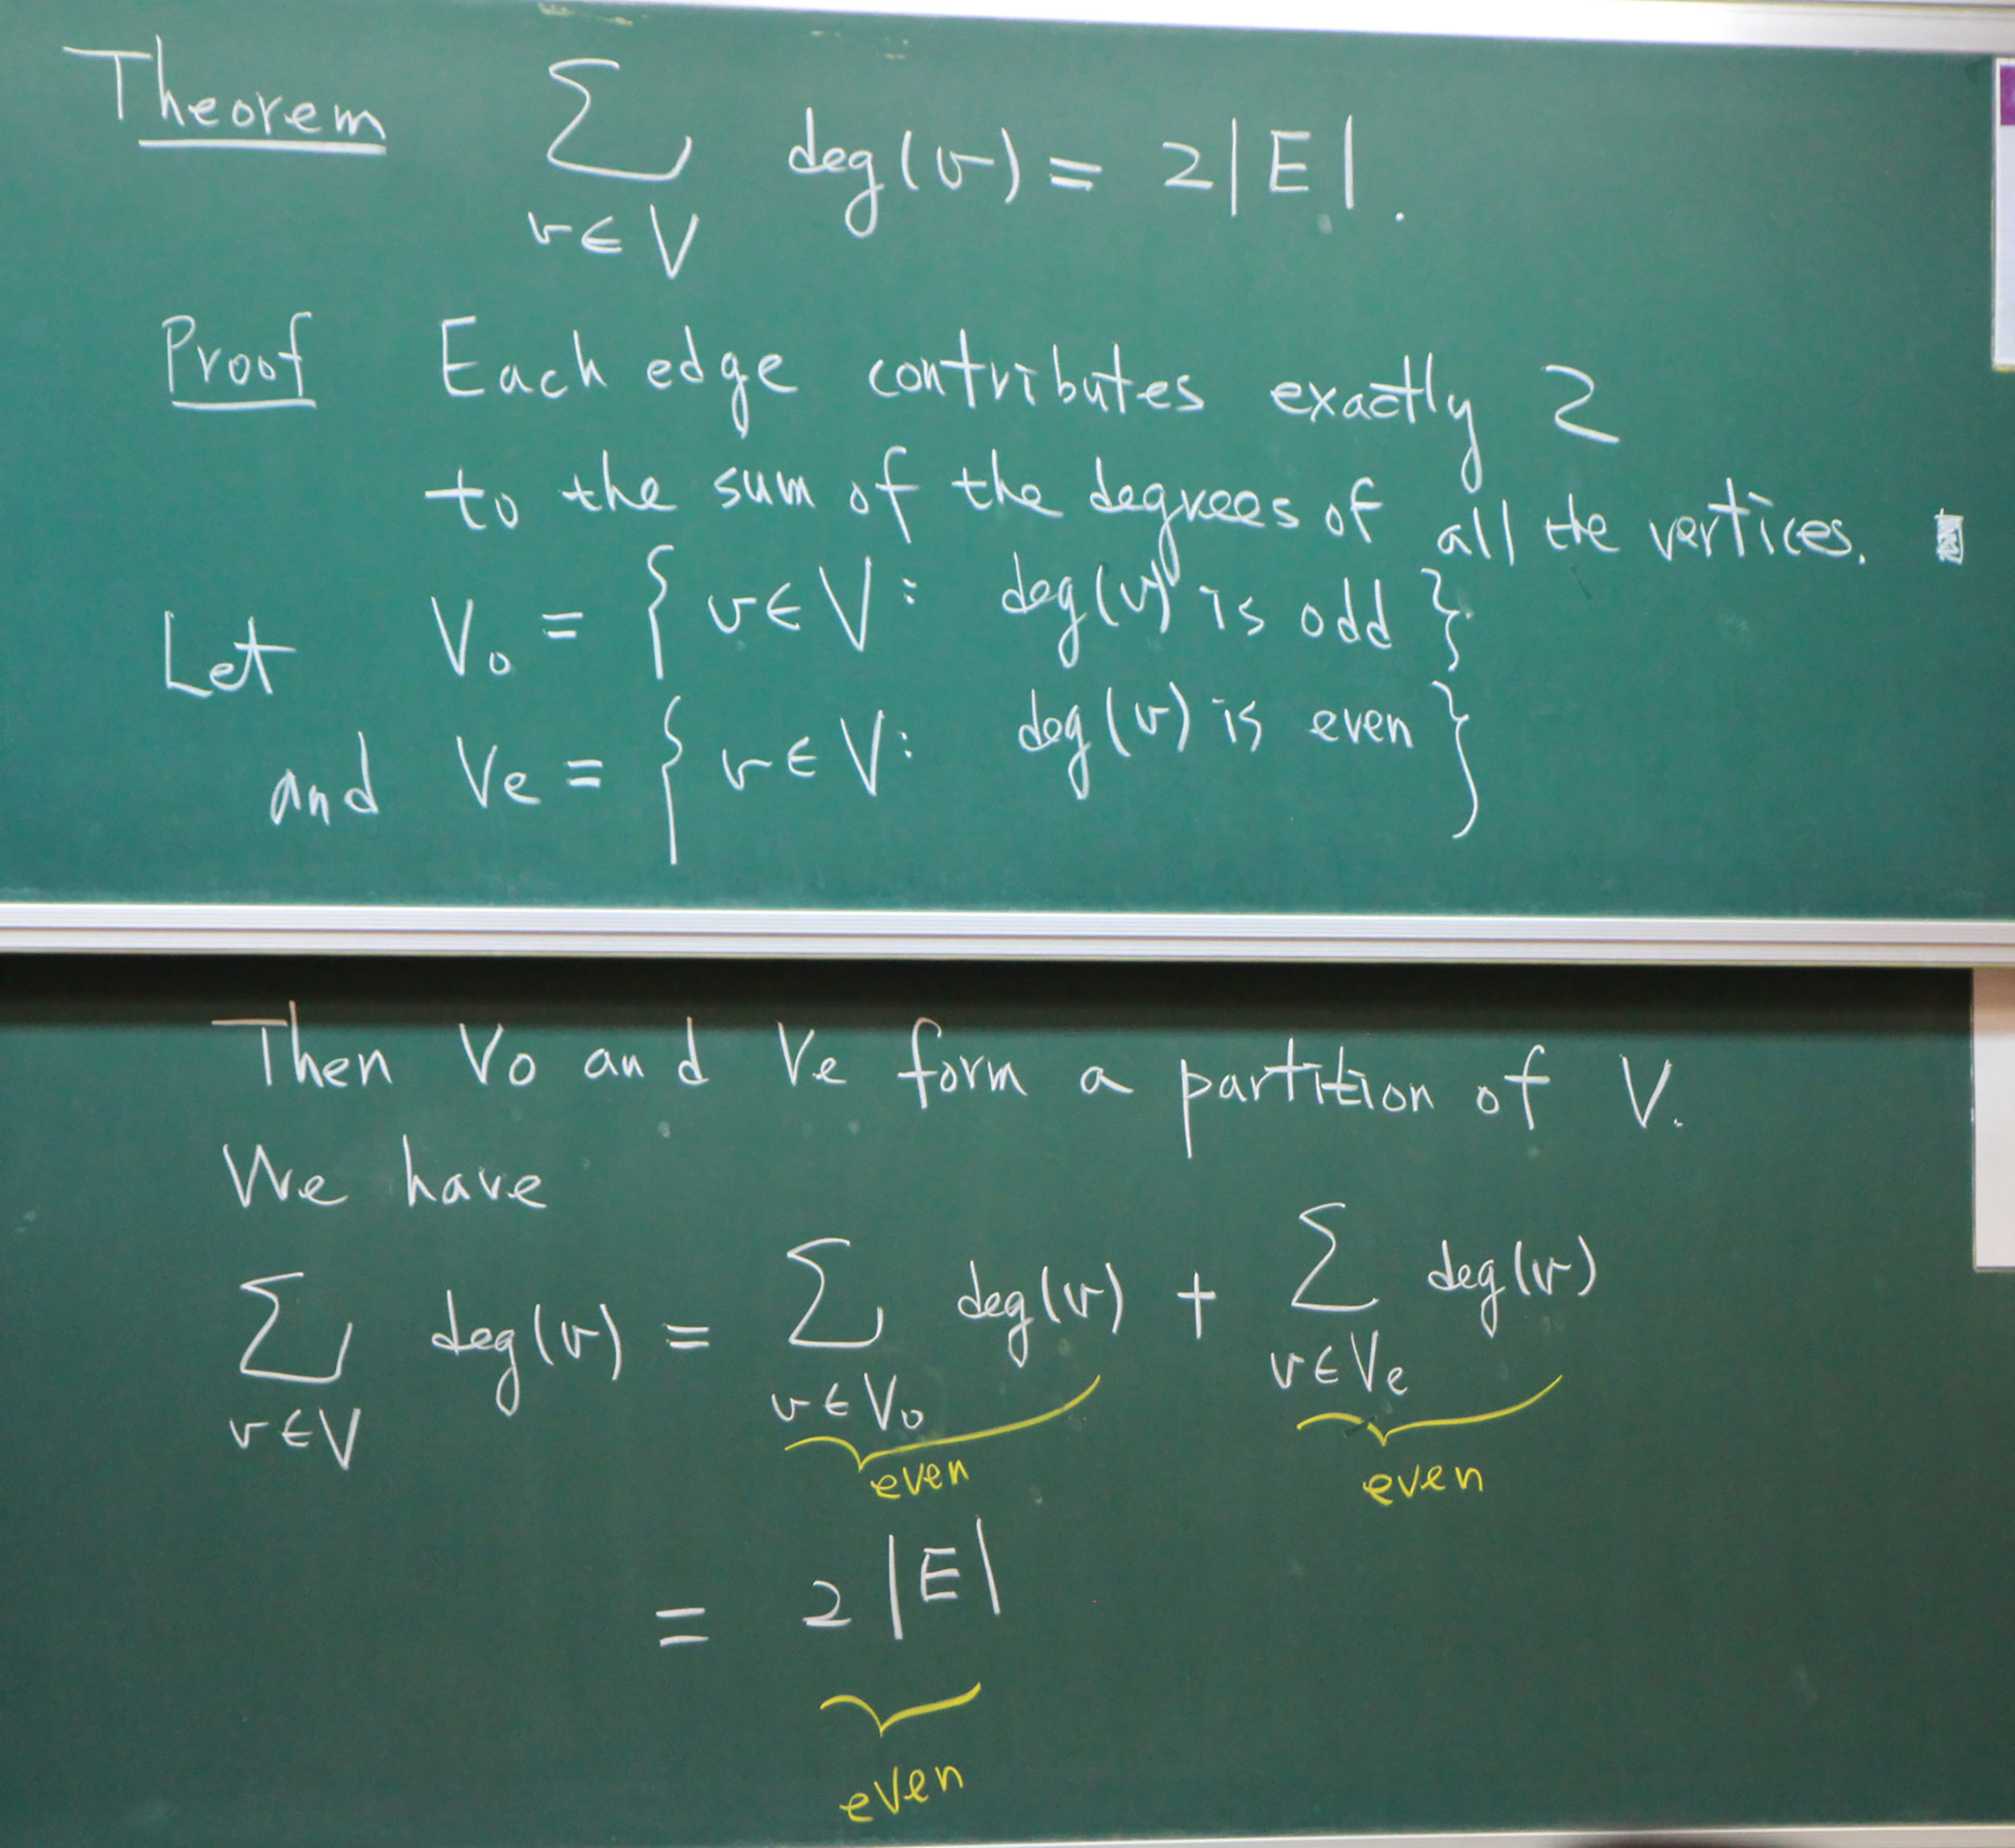 Theorem ∑ deg(v) = 2|E|.
v∈V
Proof Each edge contributes exactly 2
to the sum of the degrees of all the vertices.
Let V₀ = { v∈V: deg(v) is odd }
and Ve = { v∈V: deg(v) is even }
Then Vo and Ve form a partition of V.
We have
∑ deg(v) = ∑ deg(v) + ∑ deg(v)
v∈V v∈V₀ v∈Ve
even even
= 2|E|
even